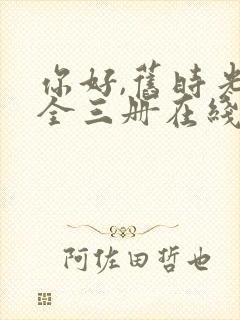 你好,舊時光
全三册在綫
阿佐田哲也